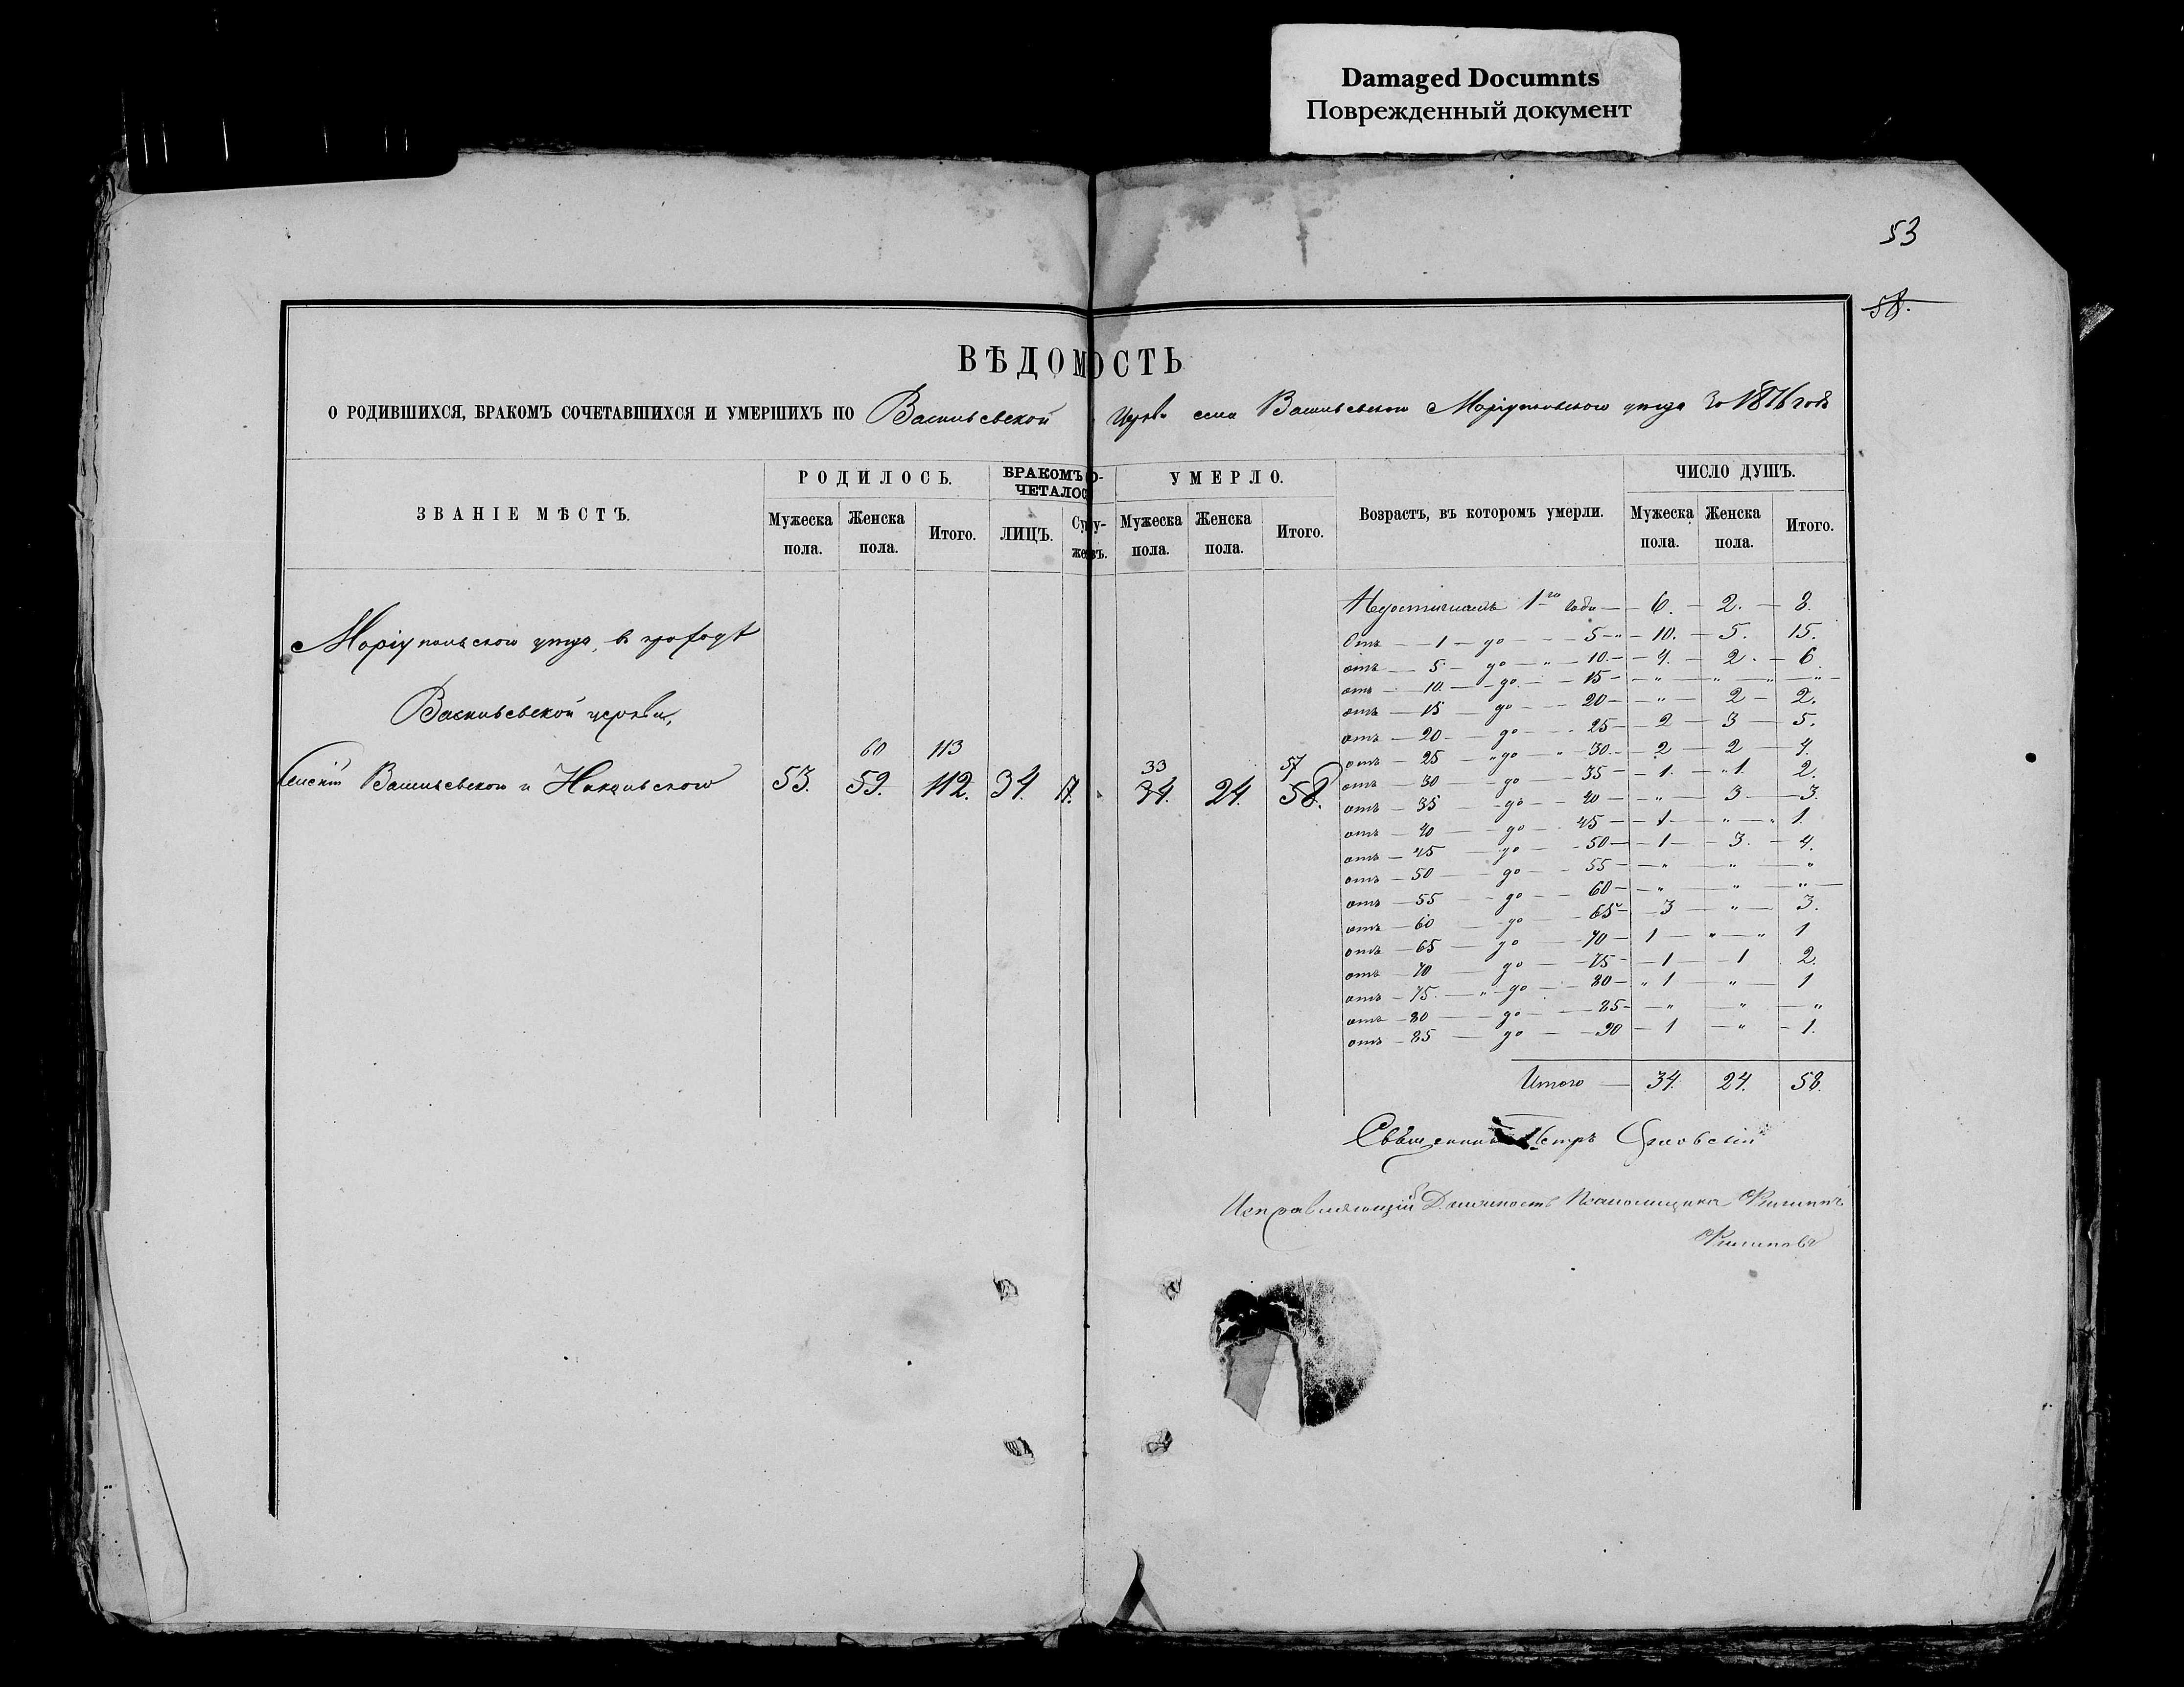 Damaged Documnts
Поврежденный документ
53
58.
ВѢДОМОСТЬ
О РОДИВШИХСЯ, БРАКОМЪ СОЧЕТАВШИХСЯ И УМЕРШИХЪ ПО Васильевской Церкви села Васильевскаго Маріупольскаго уѣзда За 1876 годъ
ЗВАНІЕ МѢСТЪ.
РОДИЛОСЬ.
Мужеска пола.
Женска пола.
Итого.
БРАКОМЪ СО-
ЧЕТАЛОСЬ
ЛИЦЪ.
Супру-
жествъ.
УМЕРЛО.
Мужеска пола.
Женска пола.
Итого.
Возрастъ, въ которомъ умерли.
ЧИСЛО ДУШЪ.
Мужеска пола.
Женска пола.
Итого.
Маріупольскаго уѣзда, въ приходѣ
Васильевской церкви,
60 113 33 57
Селеній Васильевскаго и 53. 59. 112. 34. 17. 34. 24. 58.
Недостигшихъ 1го года — 6. — 2. — 8.
Отъ — 1 — до — 5 — 10. — 5. 15.
отъ — 5 — до — 10 — 4. — 2. — 6
отъ — 10 — до — 15 — " — " — "
отъ — 15 — до — 20 — " — 2 — 2.
отъ — 20 — до — 25 — 2 — 3 — 5.
отъ — 25 — до — 30 — 2 — 2 — 4.
отъ — 30 — до — 35 — 1. — 1. 2.
отъ — 35 — до — 40 — " — 3 — 3.
отъ — 40 — до — 45 — 1 — " — 1.
отъ — 45 — до — 50 — 1 — 3. — 4.
отъ — 50 — до — 55 — " — " — "
отъ — 55 — до — 60 — " — " — "
отъ — 60 — до — 65 — 3 — " — 3.
отъ — 65 — до — 70 — 1 — " — 1
отъ — 70 — до — 75 — 1 — 1 2.
отъ — 75 — до — 80 — 1 — " — 1
отъ — 80 — до — 85 — " — " — "
отъ — 85 — до — 90 — 1 — " — 1.
Итого — 34. 24. 58.
Священникъ Петръ
Исправляющій Должность Псаломщика Филиппъ
Филиповъ